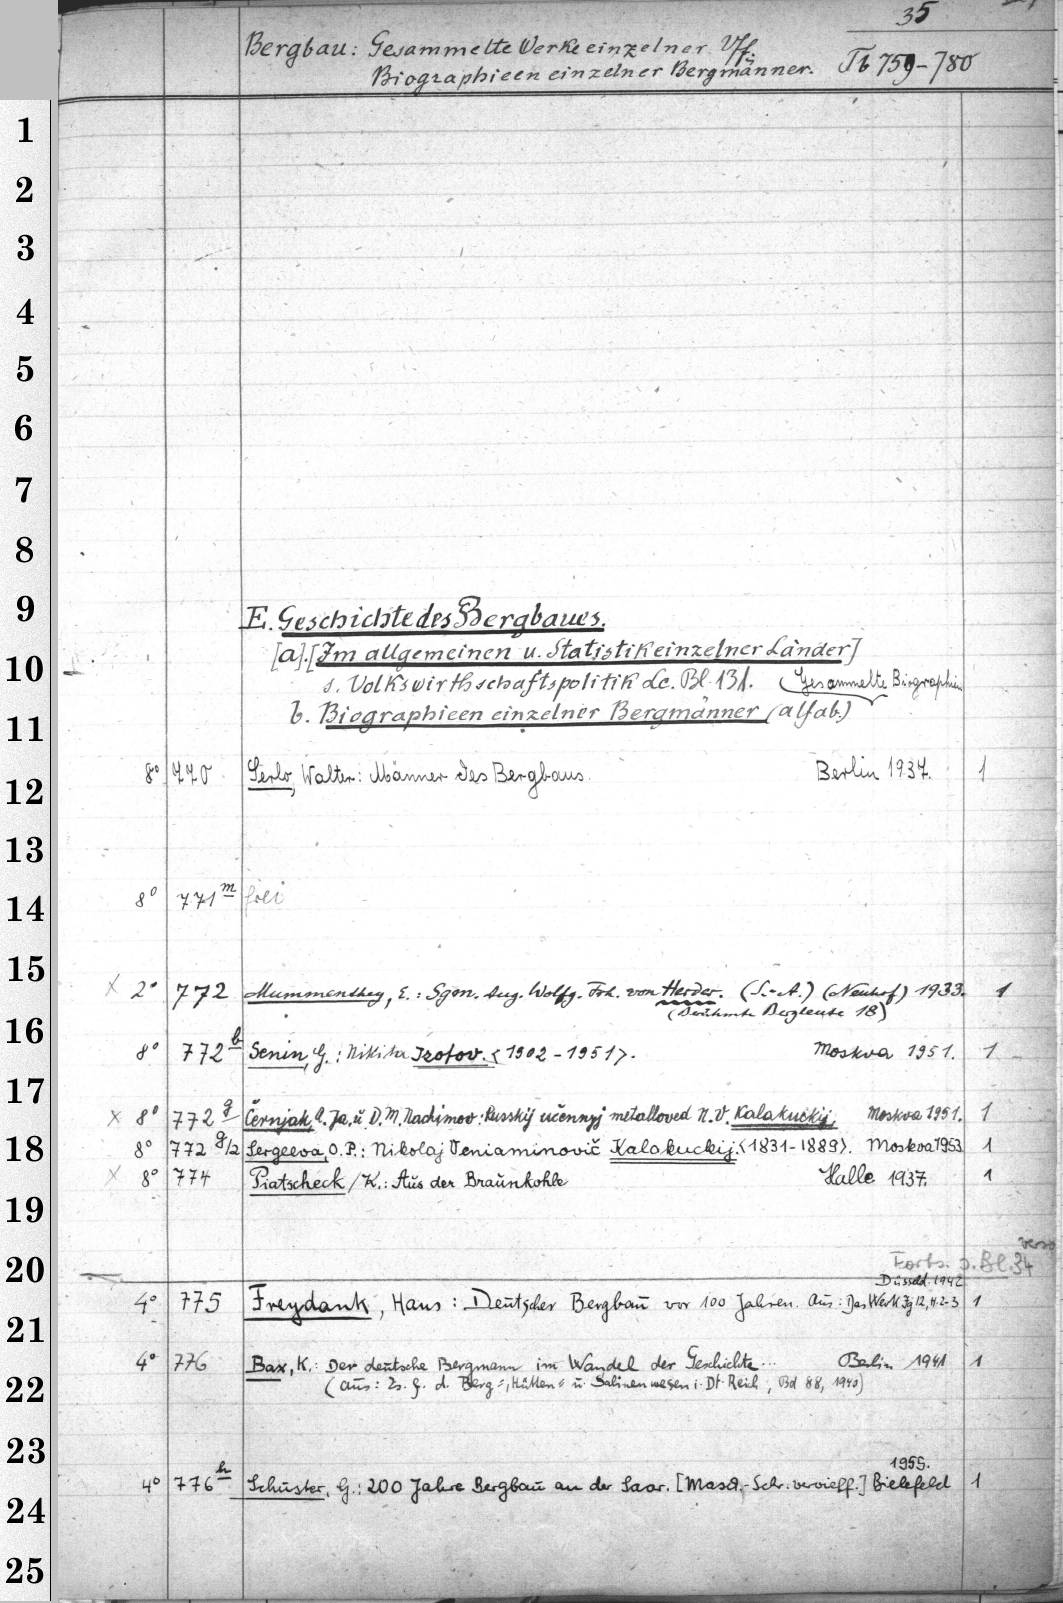 35
Bergbau: Gesammelte Werke einzelner Vff.
Biographieen einzelner Bergmänner. Tb 759-780
1
2
3
4
5
6
7
8
9
E. Geschichte des Bergbaues.
10
[a].[Im allgemeinen u. Statistik einzelner Länder]
s. Volkswirthschaftspolitik Lc. Bl. 131. (Gesammelte Biographien
11
b. Biographieen einzelner Bergmänner (alfab.)
12
8° 770 Serlo, Walter: Männer des Bergbaus. Berlin 1937. 1
13
14
8° 771m frei
15
x 2° 772 Mummenthey, E.: Sgm. Aug. Wolfg. Frh. von Herder. (S.-A.) (Neuhof) 1933. 1
(Berühmte Bergleute 18)
16
8° 772b Senin, G.: Nikita Izotov. <1902-1951>. Moskva 1951. 1
17
x 8° 772g Černjak, A. Ja. u D. M. Nachimov: Russkij učennyj metalloved N. V. Kalakuckij. Moskva 1951. 1
18
8° 772g/2 Sergeeva, O. P.: Nikolaj Veniaminovič Kalakuckij. <1831-1889>. Moskva 1953 1
x 8° 774 Piatscheck, K.: Aus der Braunkohle Halle 1937. 1
19
verso
20
Forts. s. Bl. 34
Düsseld. 1942
21
4° 775 Freydank, Hans: Deutscher Bergbau vor 100 Jahren. Aus: Das Werk Jg 12, H. 2-3 1
22
4° 776 Bax, K.: Der deutsche Bergmann im Wandel der Geschichte... Berlin 1941 1
(Aus: Zs. f. d. Berg=, Hütten= u. Salinenwesen i. Dt. Reich, Bd 88, 1940)
23
1955.
24
4° 776h Schuster, G.: 200 Jahre Bergbau an der Saar. [Masch.-Schr. vervielf.] Bielefeld 1
25